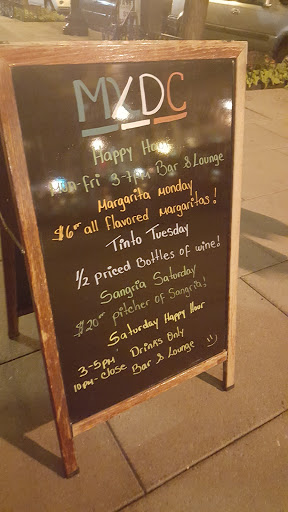 MXDC
Happy Hour
Mon-Fri 3-7pm Bar & Lounge
Margarita Monday
$6⁰⁰ all flavored Margaritas!
Tinto Tuesday
1/2 priced Bottles of wine!
Sangria Saturday
$20⁰⁰ pitcher of Sangria!
Saturday Happy Hour
3-5pm Drinks Only
10pm-close Bar & Lounge